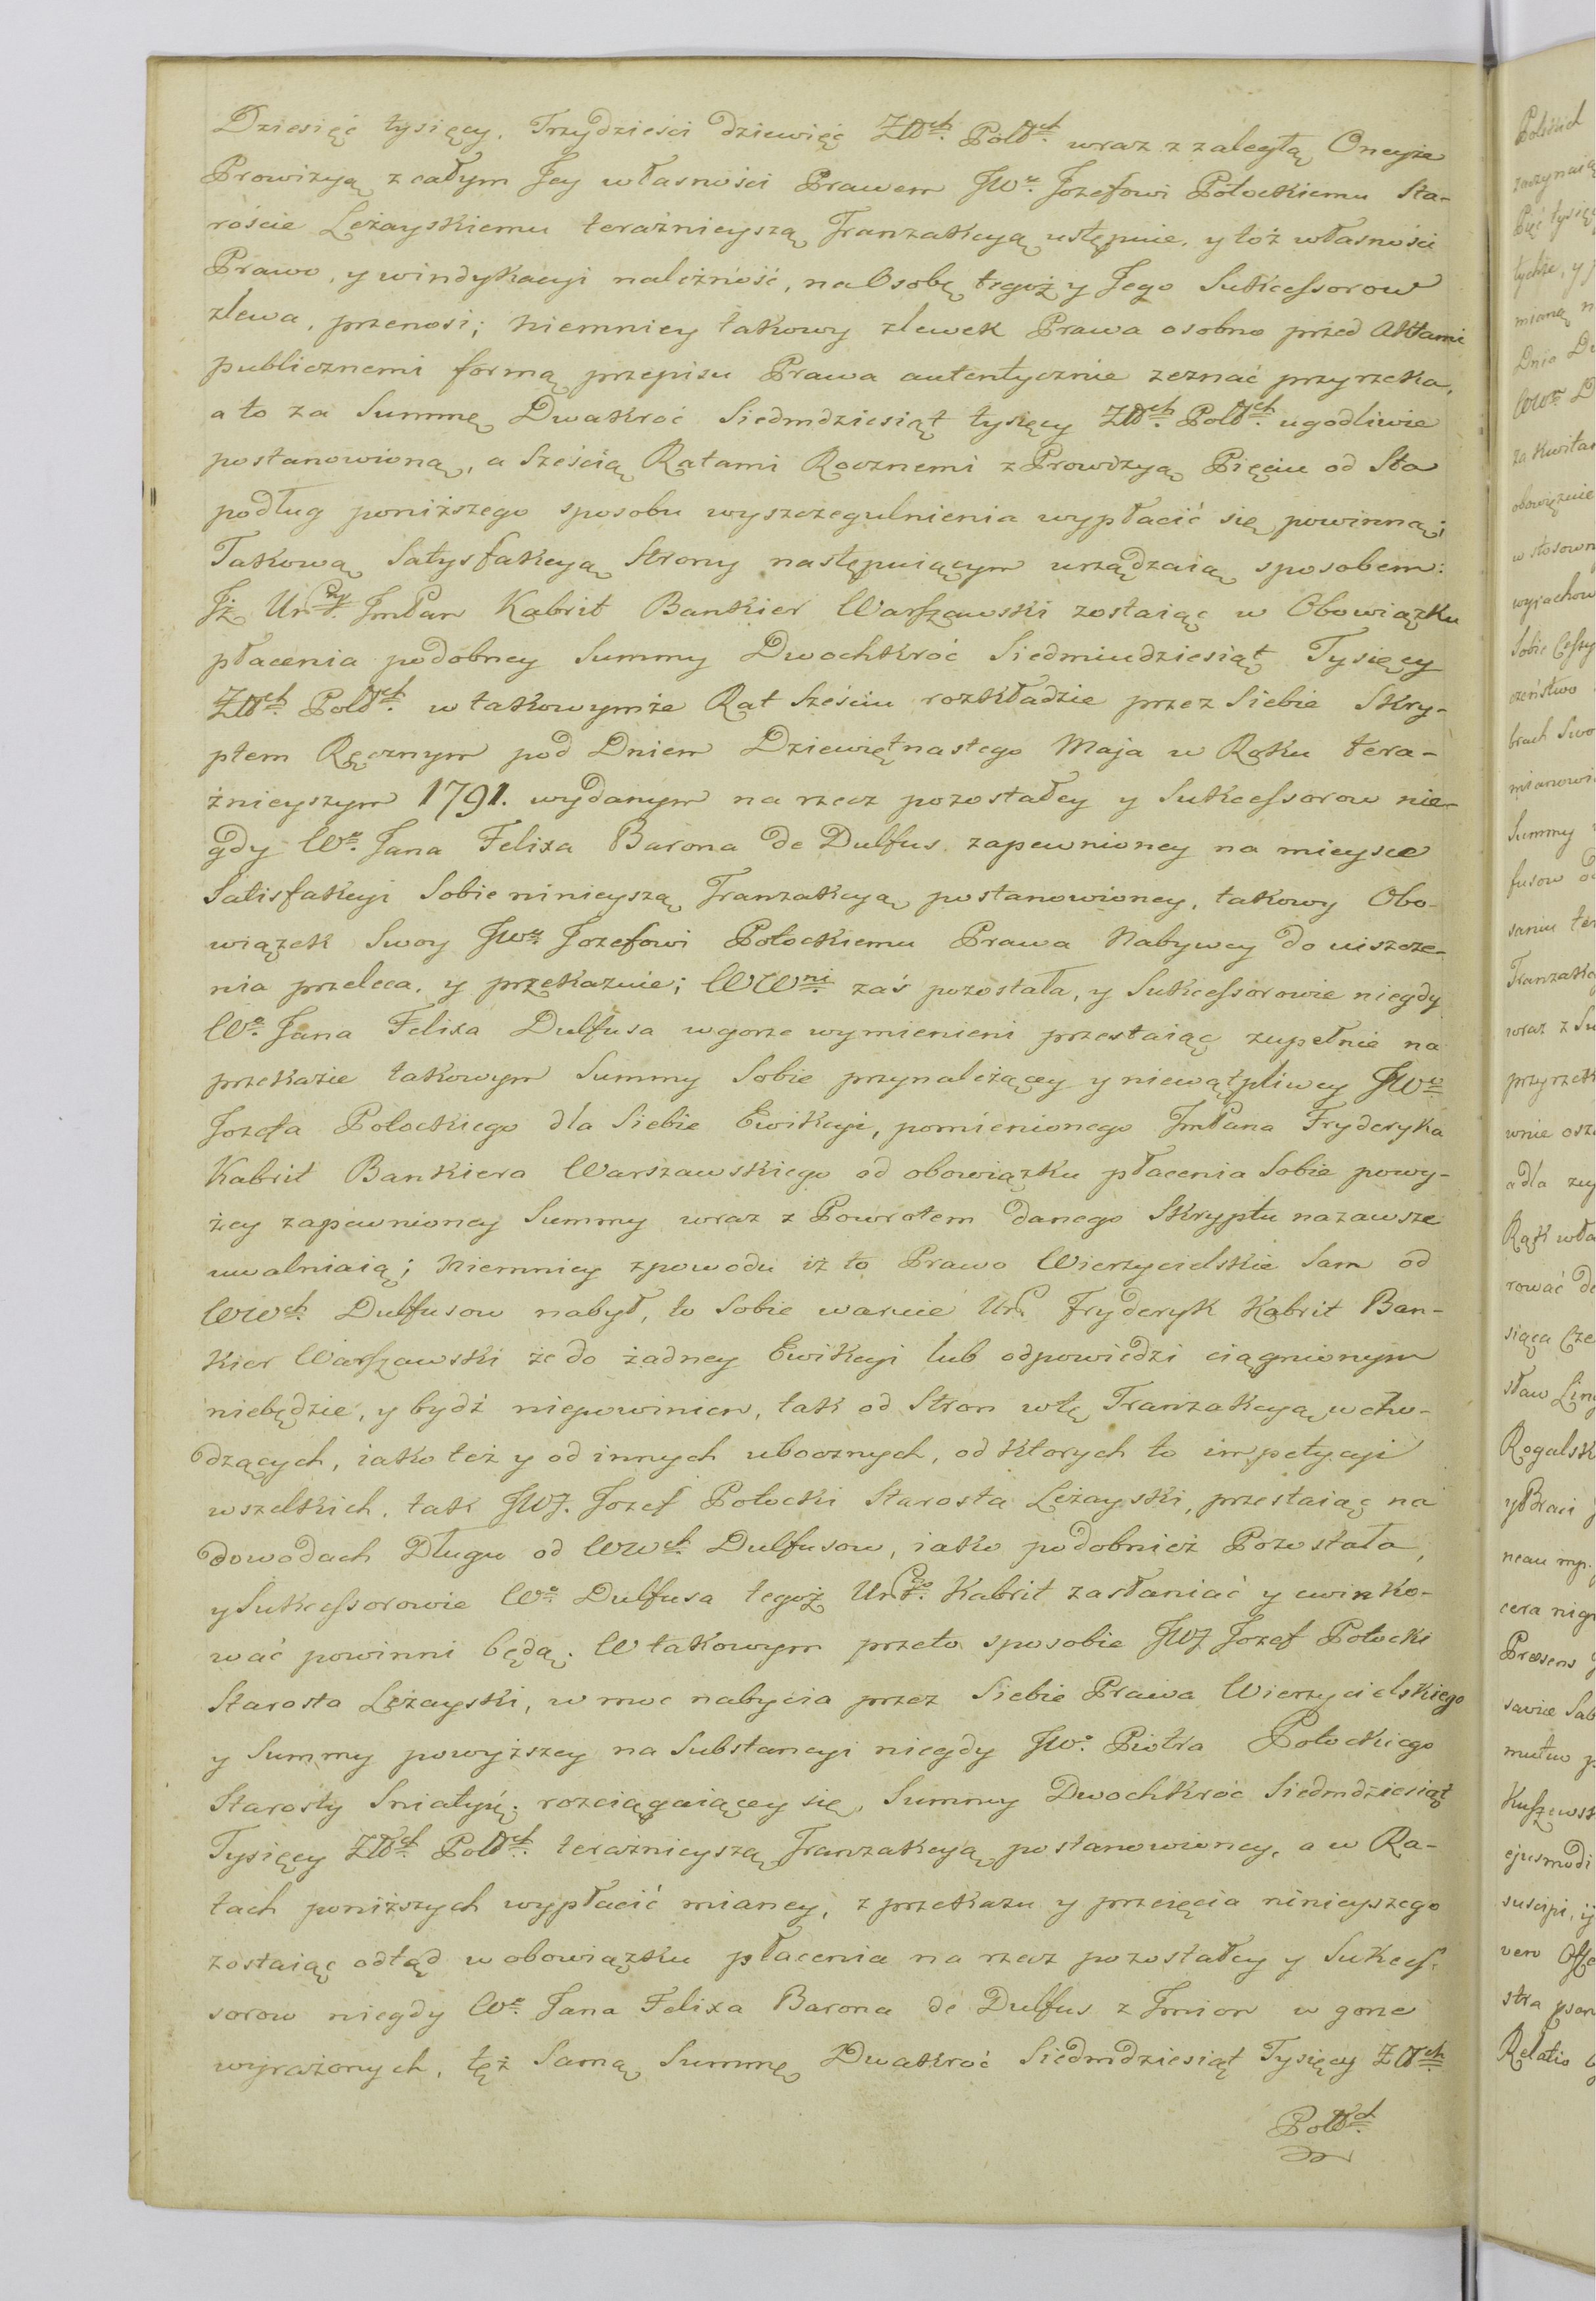 Dziesięć tysięcy. Trzydzieści dziewięć Złłch. Polłch. wraz z zaległą Oneyże
Prowizyą z całym Jey własności Prawem JWu. Jozefowi Potockiemu Sta-
roście Leżayskiemu teraźnieyszą Tranzakcyą ustępuie, y toż własności
Prawo, y windykacyi należność, na Osobę tegoż y Jego Sukcessorow
zlewa, przenosi; niemniey takowy zlewek Prawa osobno przed Aktami
publicznemi formą przepisu Prawa autentycznie zeznać przyrzeka,
a to za Summę Dwakroć Siedmdziesiąt tysięcy Złłch. Polłch. ugodliwie
postanowioną, a Sześcią Ratami Rocznemi z Prowizyą Pięciu od Sta
podług poniższego sposobu wyszczegulnienia wypłacić się powinną;
Takową Satysfakcyą Strony następuiącym urządzaią sposobem:
Jż Urny. JmPan Kabrit Bankier Warszawski zostaiąc w Obowiązku
płacenia podobney Summy Dwochkroć Siedmiudziesiąt Tysięcy
Złłch. Polłch. w takowymże Rat Sześciu rozkładzie przez Siebie Skry-
ptem Ręcznym pod Dniem Dziewiętnastego Maja w Roku tera-
źnieyszym 1791. wydanym na rzecz pozostałey y Sukcessorow nie-
gdy Wo. Jana Felixa Barona de Dulfus zapewnioney na mieysce
Satisfakcyi Sobie ninieyszą Tranzakcyą postanowioney, takowy Obo-
wiązek Swoy JWu. Jozefowi Potockiemu Prawa Nabywcy do uiszcze-
nia przeleca, y przekazuie; WWni. zaś pozostała, y Sukcessorowie niegdy
Wo. Jana Felixa Dulfusa w gorze wymienieni przestaiąc zupełnie na
przekazie takowym Summy Sobie przynależącey y niewątpliwey JWo.
Jozefa Potockiego dla Siebie Ewikcyi, pomienionego JmPana Fryderyka
Kabrit Bankiera Warszawskiego od obowiązku płacenia Sobie powy-
żey zapewnioney Summy wraz z Powrotem danego Skryptu nazawsze
uwalniaią; niemniey z powodu iż to Prawo Wierzycielskie Sam od
WWch. Dulfusow nabył, to Sobie waruie Ur. Fryderyk Kabrit Ban-
kier Warszawski że do żadney Ewikcyi lub odpowiedzi ciągnionym
niebędzie, y bydź niepowinien, tak od Stron w tę Tranzakcyą wcho-
dzących, iako też y od innych ubocznych, od ktorych to impetycyi
wszelkich, tak JWJ. Jozef Potocki Starosta Leżayski, przestaiąc na
dowodach Długu od WWch. Dulfusow, iako podobnież Pozostała,
y Sukcessorowie Wo. Dulfusa tegoż Urgo. Kabrit zasłaniać y ewinko-
wać powinni będą. W takowym przeto sposobie JWJ Jozef Potocki
Starosta Leżayski, w moc nabycia przez Siebie Prawa Wierzycielskiego
y Summy powyższey na Substancyi niegdy JWo. Piotra Potockiego
Starosty Sniatyń. rozciągaiącey się, Summy Dwochkroć Siedmdziesiąt
Tysięcy Złłch. Polłch. teraźnieyszą Tranzakcyą postanowioney, a w Ra-
tach poniższych wypłacić mianey, z przekazu y przeięcia ninieyszego
zostaiąc odtąd w obowiązku płacenia na rzecz pozostałey y Sukces-
sorow niegdy Wo. Jana Felixa Barona de Dulfus z Jmion w gorze
wyrażonych, tęż Samą Summę Dwakroć Siedmdziesiąt Tysięcy Złłch.
Polłch.